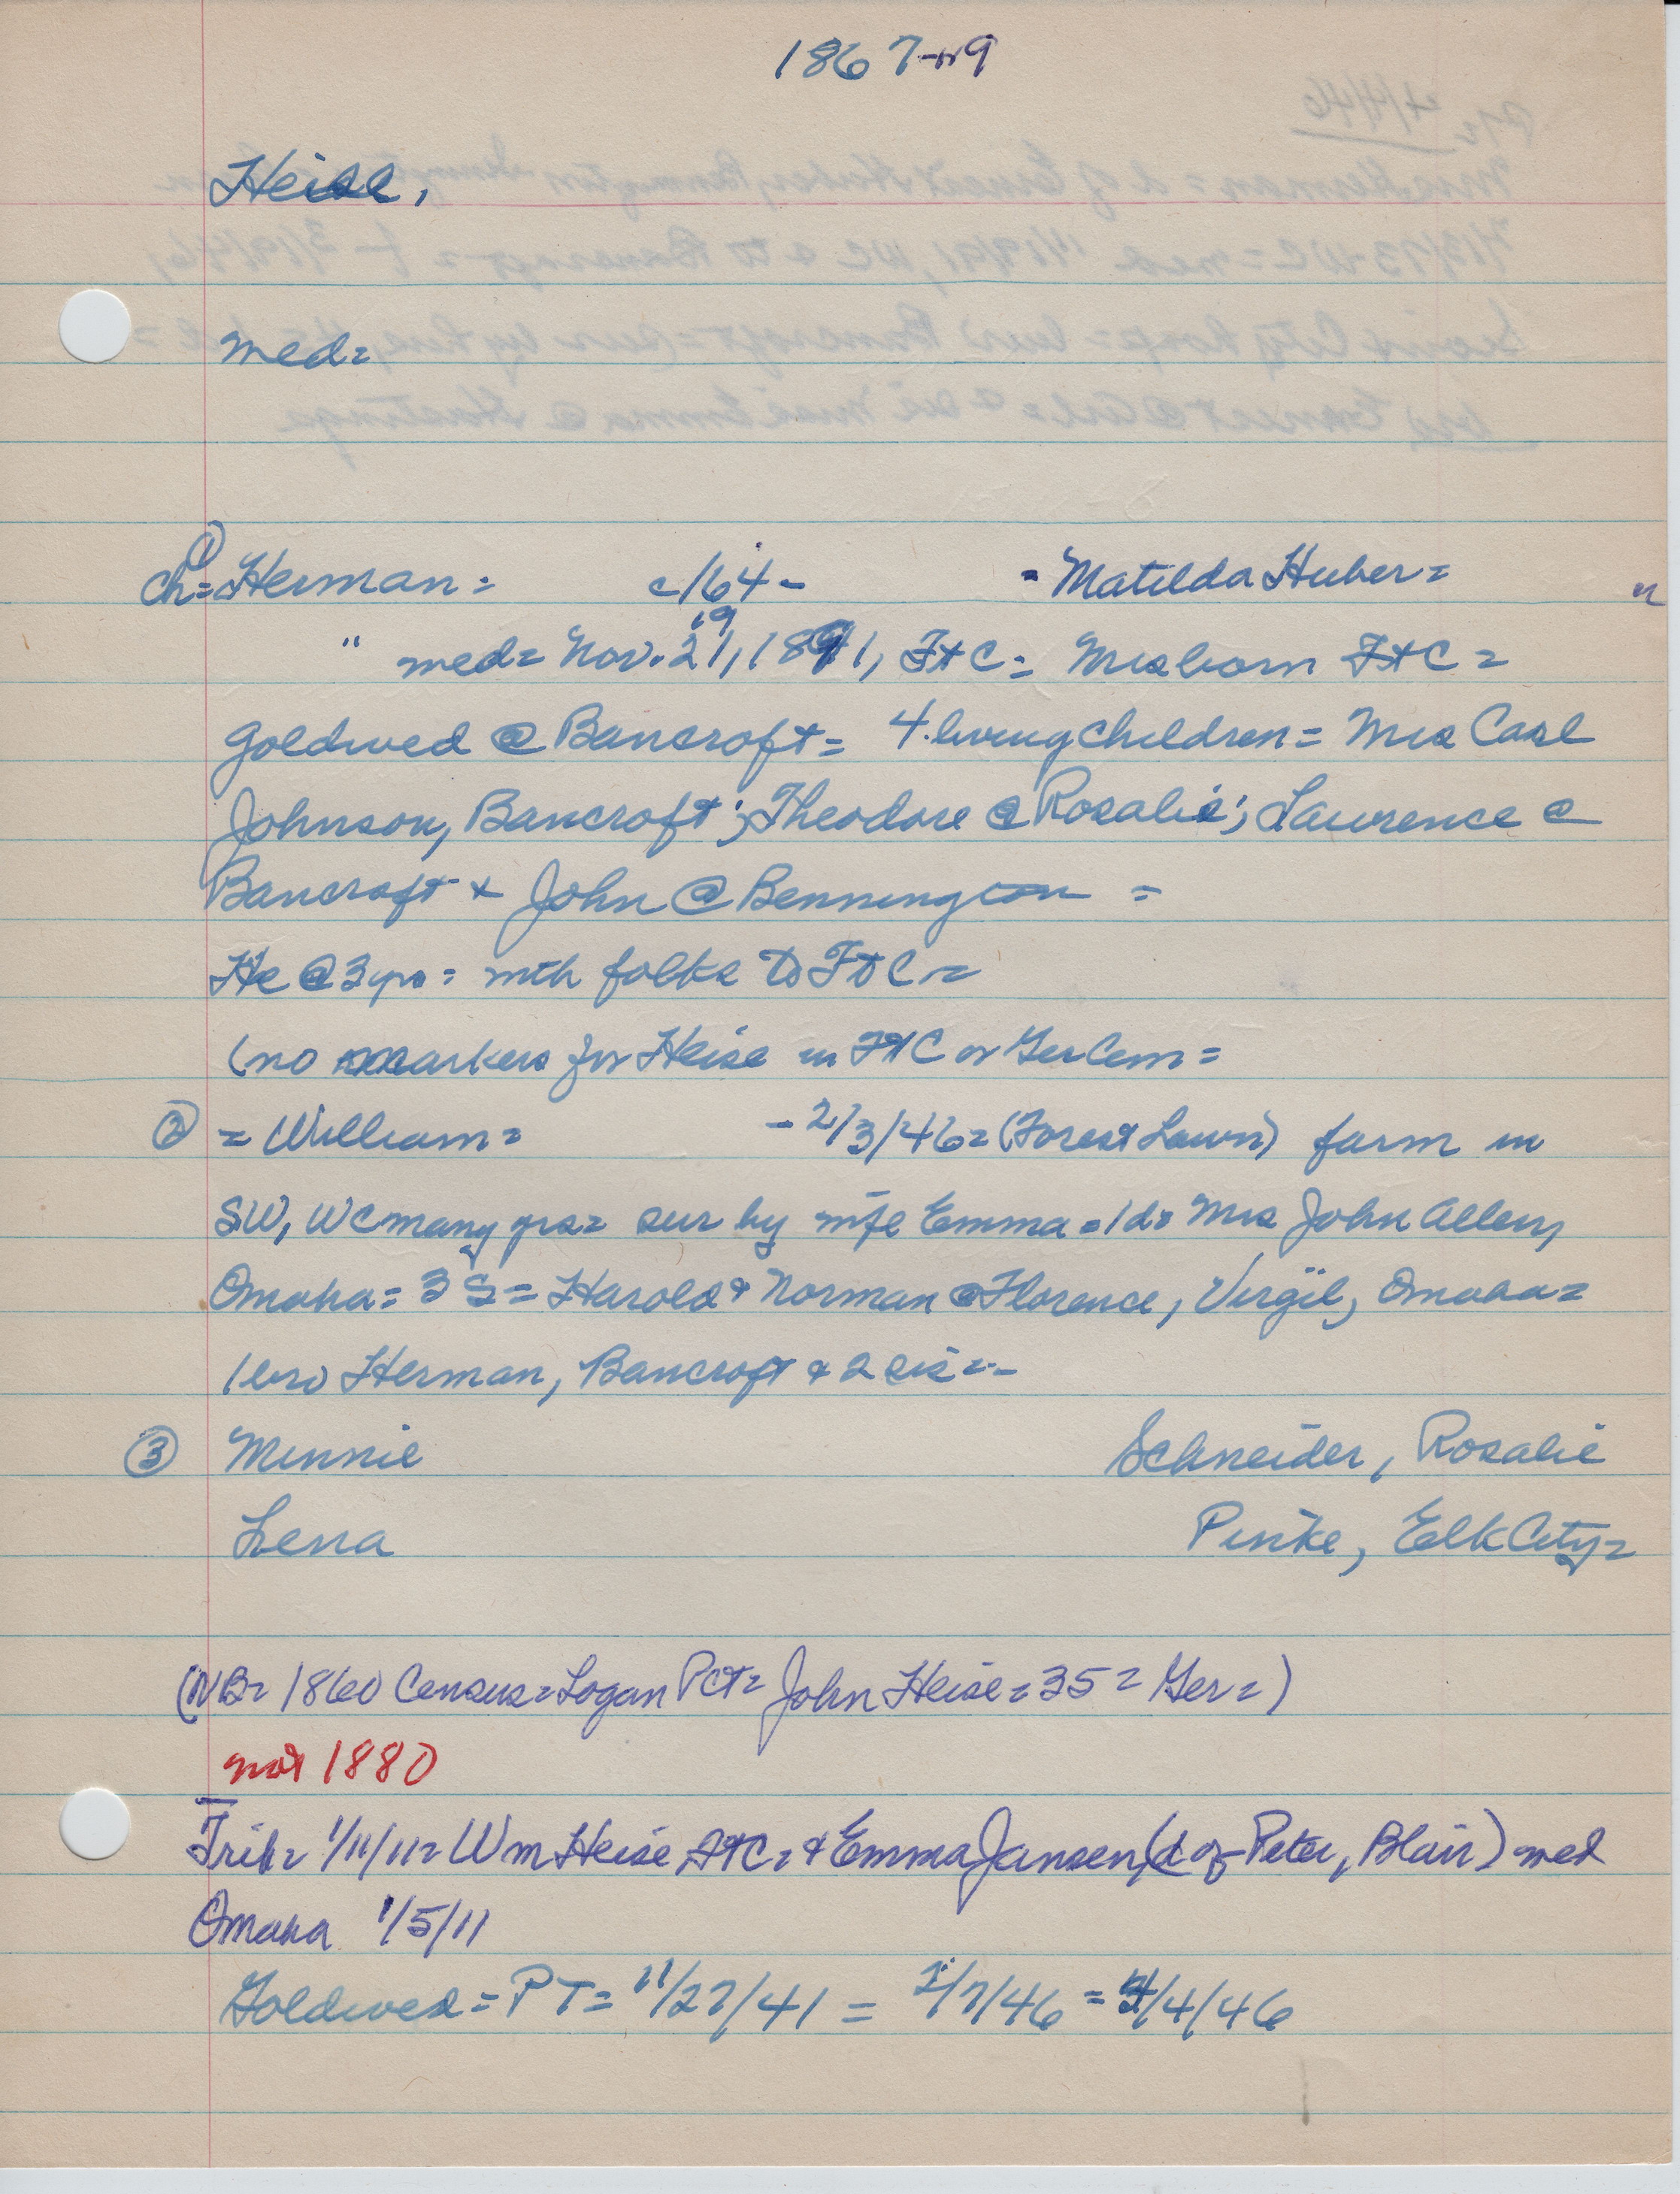 1867-or 9
Heise,
med=
①
Ch= Herman = c/64 - = Matilda Huber =
19
" med= Nov. 21, 1891, FtC = Mrs born FtC =
goldwed @ Bancroft = 4 living children = Mrs Carl
Johnson, Bancroft; Theodore @ Rosalie; Lawrence @
Bancroft + John @ Bennington =
He @ 3 yrs = with folks to FtC =
(no markers for Heise in FtC or Ger Cem =
② = William = - 2/3/46 = (Forest Lawn) farm in
SW, WC many yrs = sur by wife Emma = 1 d = Mrs John Allen,
Omaha = 3 S = Harold + Norman @ Florence, Virgil, Omaha =
1 bro Herman, Bancroft + 2 sis = -
③ Minnie Schneider, Rosalie
Lena Pinke, Elk City =
(NB = 1860 Census = Logan Pct = John Heise = 35 = Ger = )
not 1880
Trib = 1/11/11 = Wm Heise, FtC = + Emma Jansen, (d of Peter, Blair) med
Omaha 1/5/11
Goldwed = PT = 11/27/41 = 2/7/46 = 4/4/46